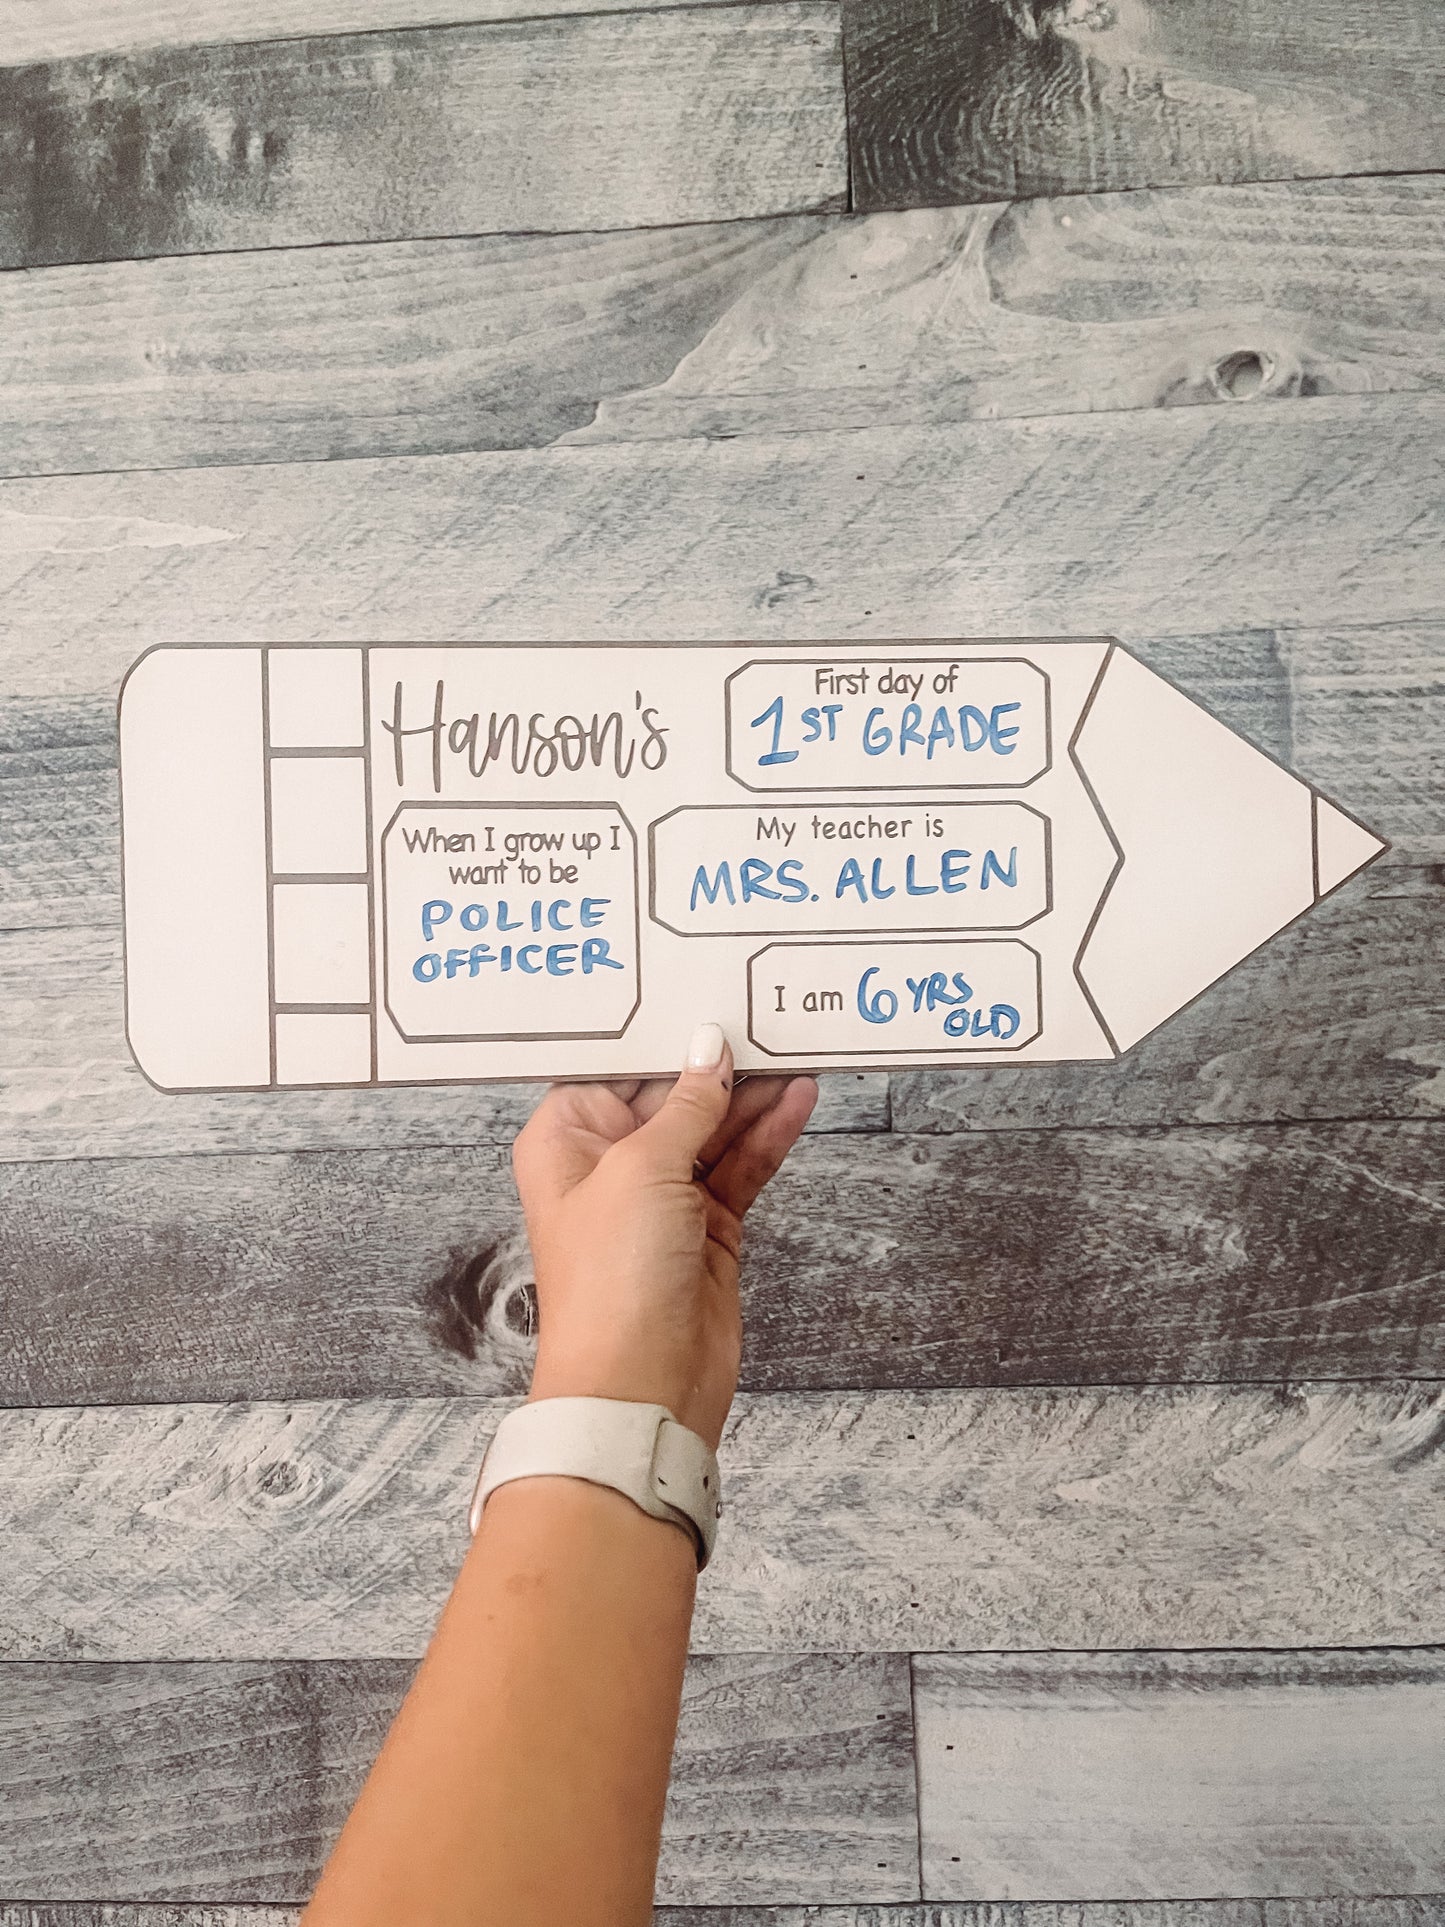 Hanson's
First day of
1ST GRADE
When I grow up I
want to be
POLICE
OFFICER
My teacher is
MRS. ALLEN
I am 6 YRS
OLD